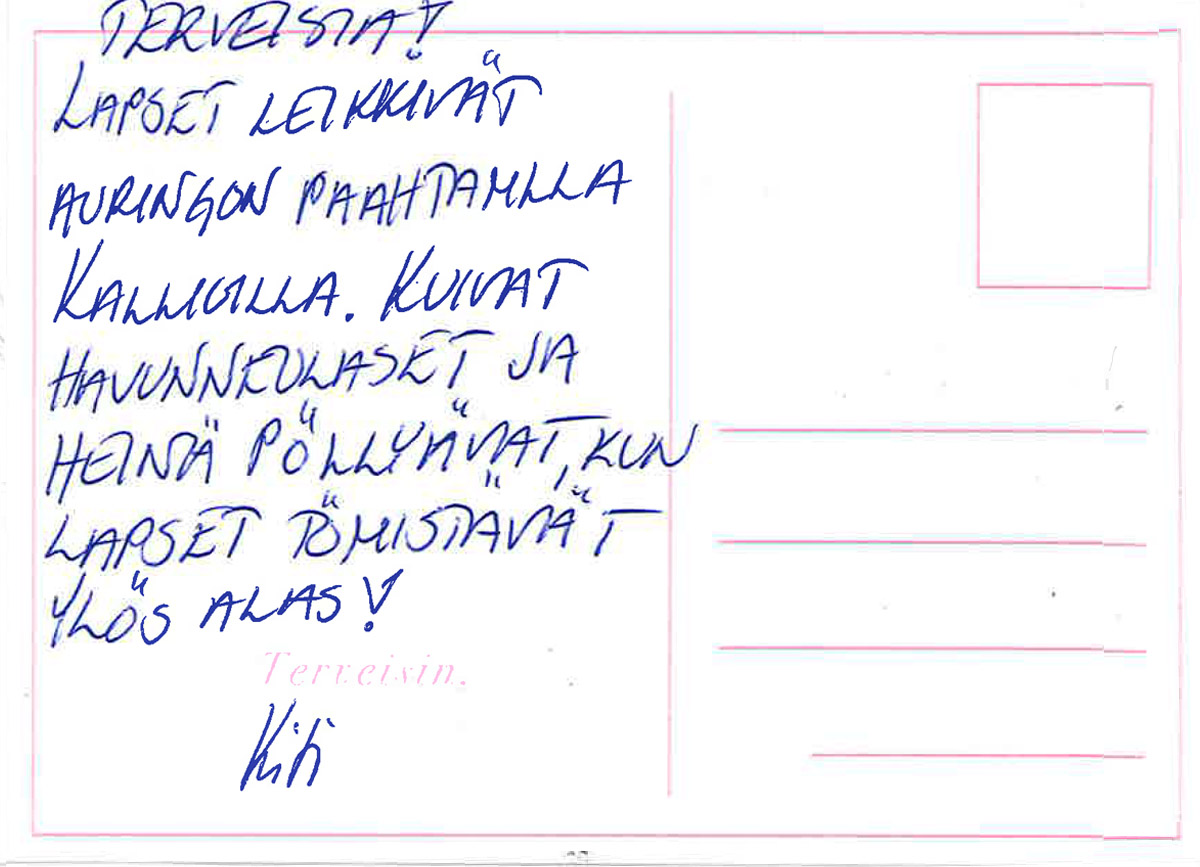 TERVEISIA!
LAPSET LEIKKIVÄT
AURINGON PAAHTAMLLA
KALLIOILLA. KUIVAT
HAVUNNEULASET JA
HEINÄ PÖLLYÄVÄT, KUN
LAPSET TÖMISTÄVÄT
YLÖS ALAS!
Terveisin,
Kiti